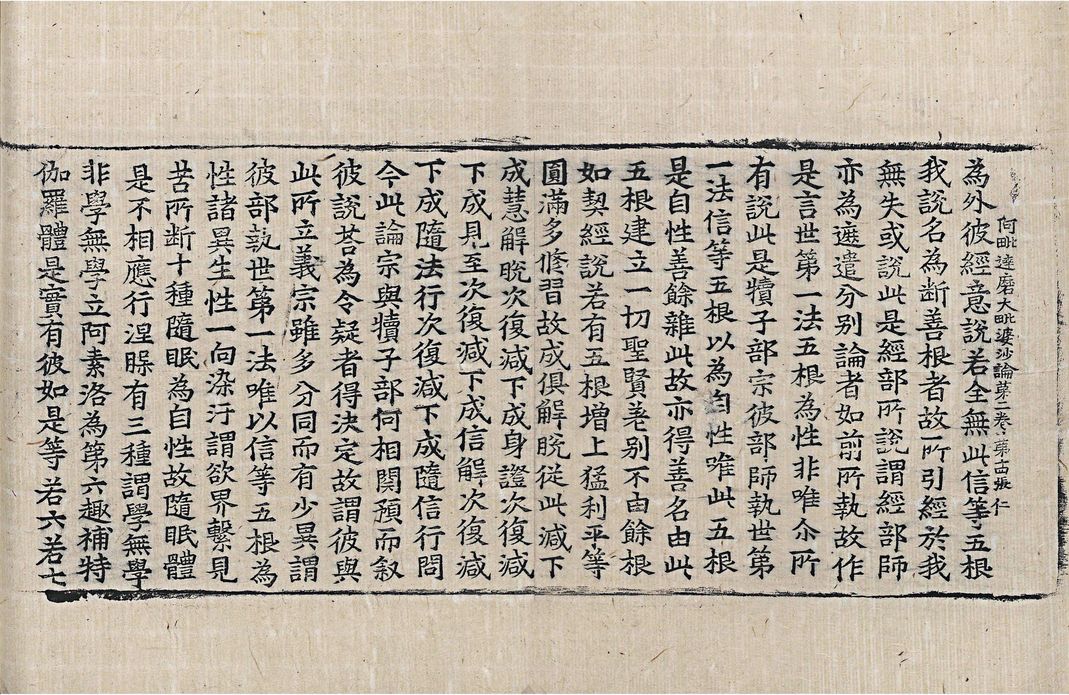 阿毗達磨大毗婆沙論第二卷 第古張 仁
為外彼經意說若全無此信等五根
我說名為断善根者故所引經於我
無失或說此是經部所說謂經部師
亦為遮遣分別論者如前所執故作
是言世第一法五根為性非唯尒所
有說此是犢子部宗彼部師執世第
一法信等五根以為自性唯此五根
是自性善餘雜此故亦得善名由此
五根建立一切聖賢差别不由餘根
如契經說若有五根增上猛利平等
圓滿多修習故成俱解脫從此減下
成慧解脫次復減下成身證次復減
下成見至次復減下成信解次復減
下成隨法行次復減下成隨信行問
今此論宗與犢子部何相関預而叙
彼說荅為令疑者得決定故謂彼與
此所立義宗雖多分同而有少異謂
彼部執世第一法唯以信等五根為
性諸異生性一向染汙謂欲界繫見
苦所断十種隨眠為自性故隨眠體
是不相應行涅槃有三種謂學無學
非學無學立阿素洛為第六趣補特
伽羅體是實有彼如是等若六若七